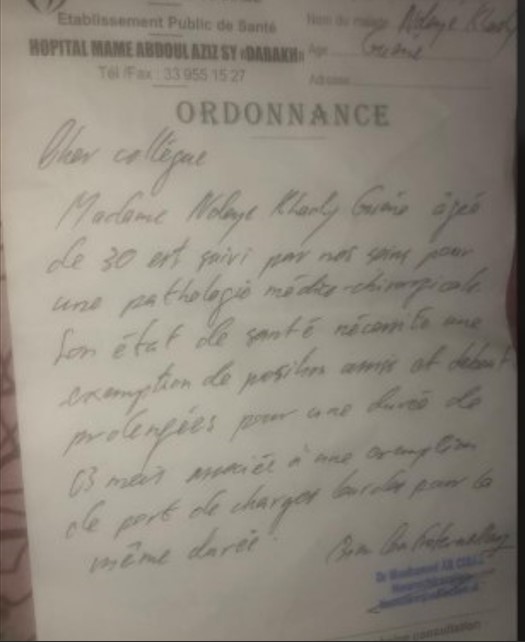 Etablissement Public de Santé
HOPITAL MAME ABDOUL AZIZ SY «DABAKH»
Tél /Fax : 33 955 15 27
Nom du malade Ndeye Khady
Age Gueye
Adresse
ORDONNANCE
Cher collègue
Madame Ndeye Khady Gueye âgée
de 30 est suivi par nos soins pour
une pathologie médico-chirurgicale.
Son état de santé nécessite une
exemption de position assis et debout
prolongées pour une durée de
03 mois associée à une exemption
de port de charges lourdes pour la
même durée.
Dr Mouhamed
consultation